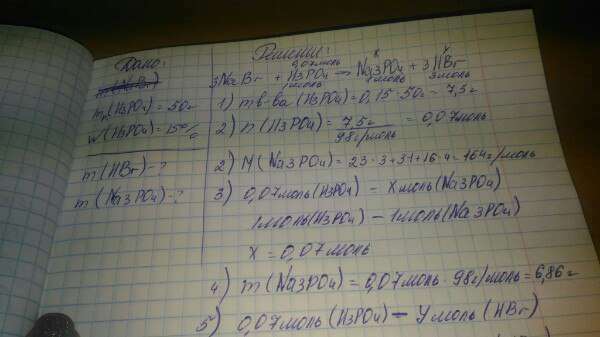 Дано:
m(NaBr)
mр(H3PO4)=50г
w(H3PO4)=15%
m(HBr)-?
m(Na3PO4)-?
Решение:
0,07моль x y
3NaBr + H3PO4 → Na3PO4 + 3HBr
1моль 1моль 3моль
1) mв-ва(H3PO4)=0,15·50г=7,5г
2) n(H3PO4)= 7,5г / 98г/моль = 0,07моль
2) M(Na3PO4)=23·3+31+16·4=164г/моль
3) 0,07моль(H3PO4) – Xмоль(Na3PO4)
1моль(H3PO4) – 1моль(Na3PO4)
X = 0,07моль
4) m(Na3PO4)=0,07моль·98г/моль=6,86г
5) 0,07моль(H3PO4) – Yмоль(HBr)